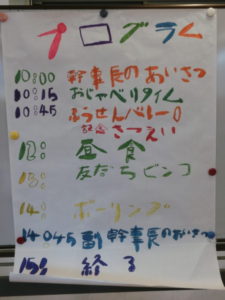 プログラム
10:00 幹事長のあいさつ
10:15 おしゃべりタイム
10:45 ふうせんバレーO
記念さつえい
12: 昼食
13: 友だちビンゴ
14: ボーリング
14045 副幹事長のあいさつ
15: 終る